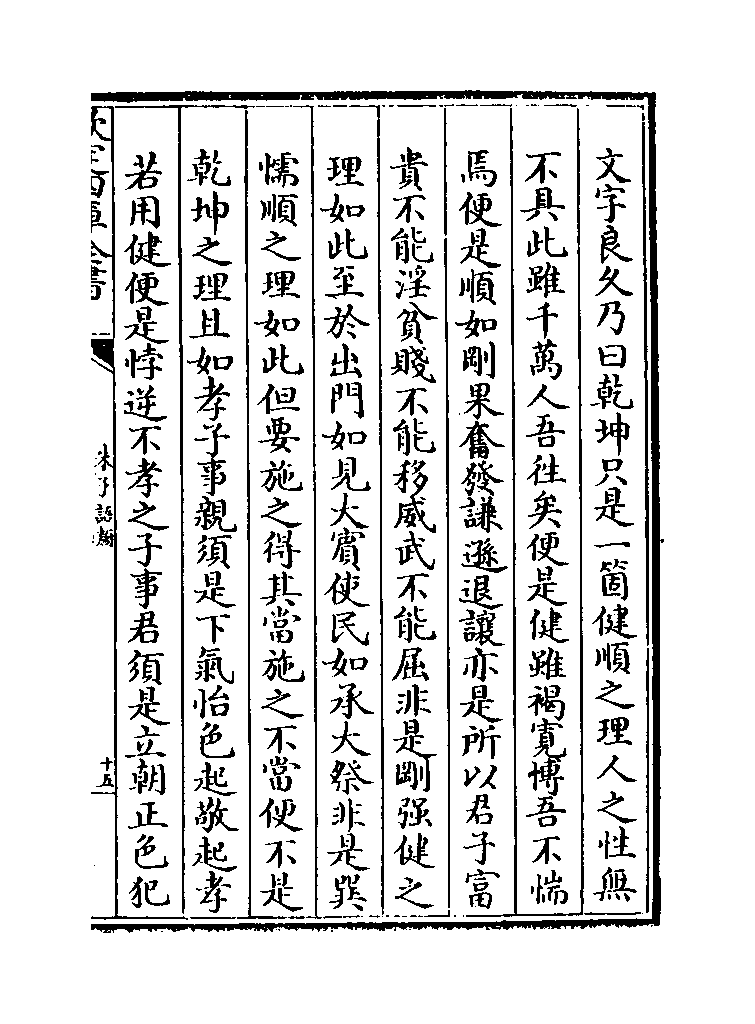 文字良久乃曰乾坤只是一箇健順之理人之性無
不具此雖千萬人吾徃矣便是健雖褐寛博吾不惴
焉便是順如剛果奮發謙遜退讓亦是所以君子富
貴不能淫貧賤不能移威武不能屈非是剛强健之
理如此至於出門如見大賔使民如承大祭非是巽
懦順之理如此但要施之得其當施之不當便不是
乾坤之理且如孝子事親須是下氣怡色起敬起孝
若用健便是悖逆不孝之子事君須是立朝正色犯
欽定四庫全書
朱子語類
十五